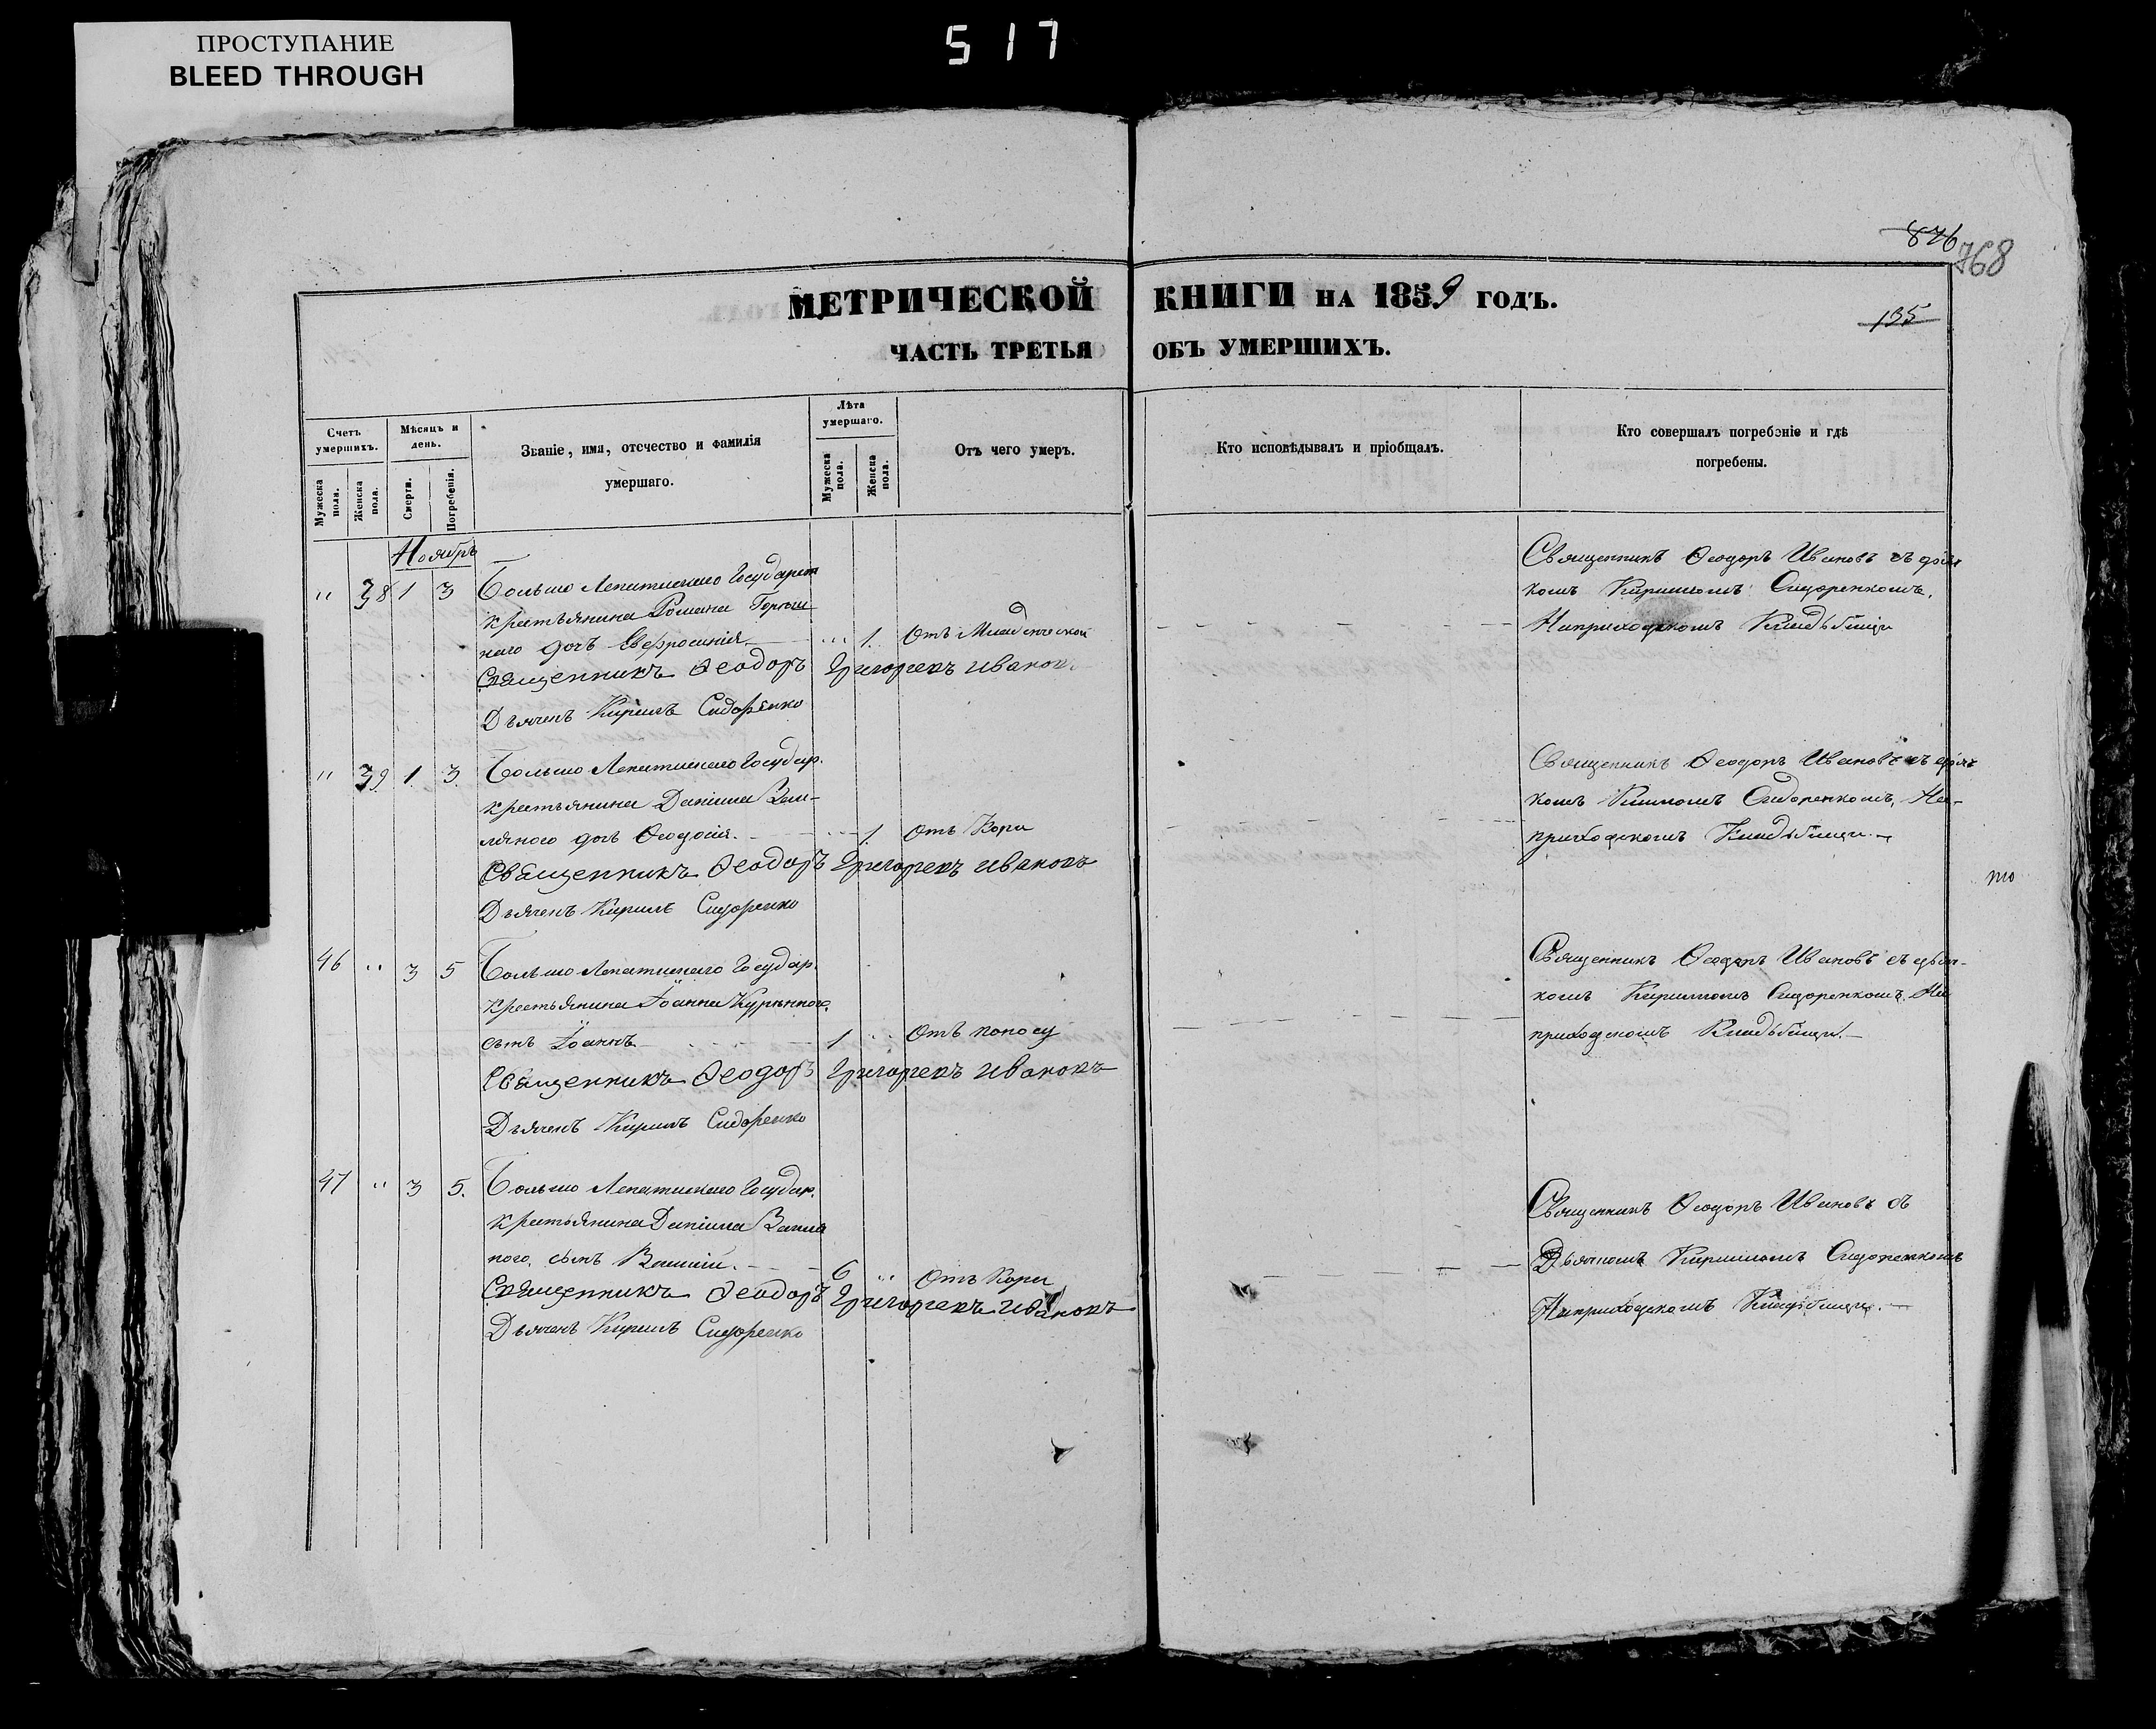 ПРОСТУПАНИЕ
BLEED THROUGH
517
876
768
МЕТРИЧЕСКОЙ КНИГИ НА 1859 ГОДЪ.
135
ЧАСТЬ ТРЕТЬЯ ОБЪ УМЕРШИХЪ.
Счетъ умершихъ.
Мужеска пола.
Женска пола.
Мѣсяцъ и день.
Смерти.
Погребенія.
Званіе, имя, отечество и фамилія умершаго.
Лѣта умершаго.
Мужеска пола.
Женска пола.
Отъ чего умеръ.
Кто исповѣдывалъ и пріобщалъ.
Кто совершалъ погребеніе и гдѣ погребены.
Ноябрь
" 38 1 3 Больше Лепатискаго Государст
крестьянина Романа
наго дочь Евфросинія " 1. Отъ Младенческой
Священникъ Ѳеодоръ Григорьевъ Ивановъ
Дьячекъ Кирилъ Сидоренко
Священникъ Ѳеодоръ Ивановъ съ дьяч
комъ Кириломъ Сидоренкомъ,
На приходскомъ Кладбищи
" 39 1. 3. Больше Лепатискаго Государ.
крестьянина Даніила
дочь Ѳеодосія. " 1. Отъ Кори
Священникъ Ѳеодоръ Григорьевъ Ивановъ
Дьячекъ Кирилъ Сидоренко
Священникъ Ѳеодоръ Ивановъ съ дьяч
комъ Сидоренкомъ, На
приходскомъ Кладбищи.
46 " 3 5 Больше Лепатискаго Государ.
крестьянина Іоанна Курѣннаго.
сынъ Іоаннъ 1 " Отъ поносу
Священникъ Ѳеодоръ Григорьевъ Ивановъ
Дьячекъ Кирилъ Сидоренко
Священникъ Ѳеодоръ Ивановъ съ дьяч-
комъ Кириломъ Сидоренкомъ, На
приходскомъ Кладбищи.
47 " 3 5. Больше Лепатискаго Государ.
крестьянина Даніила
ного. сынъ Василій. 6 " Отъ Кори
Священникъ Ѳеодоръ Григорьевъ Ивановъ
Дьячекъ Кирилъ Сидоренко
Священникъ Ѳеодоръ Ивановъ съ
Дьячкомъ Кириломъ Сидоренкомъ
На приходскомъ Кладбищи.